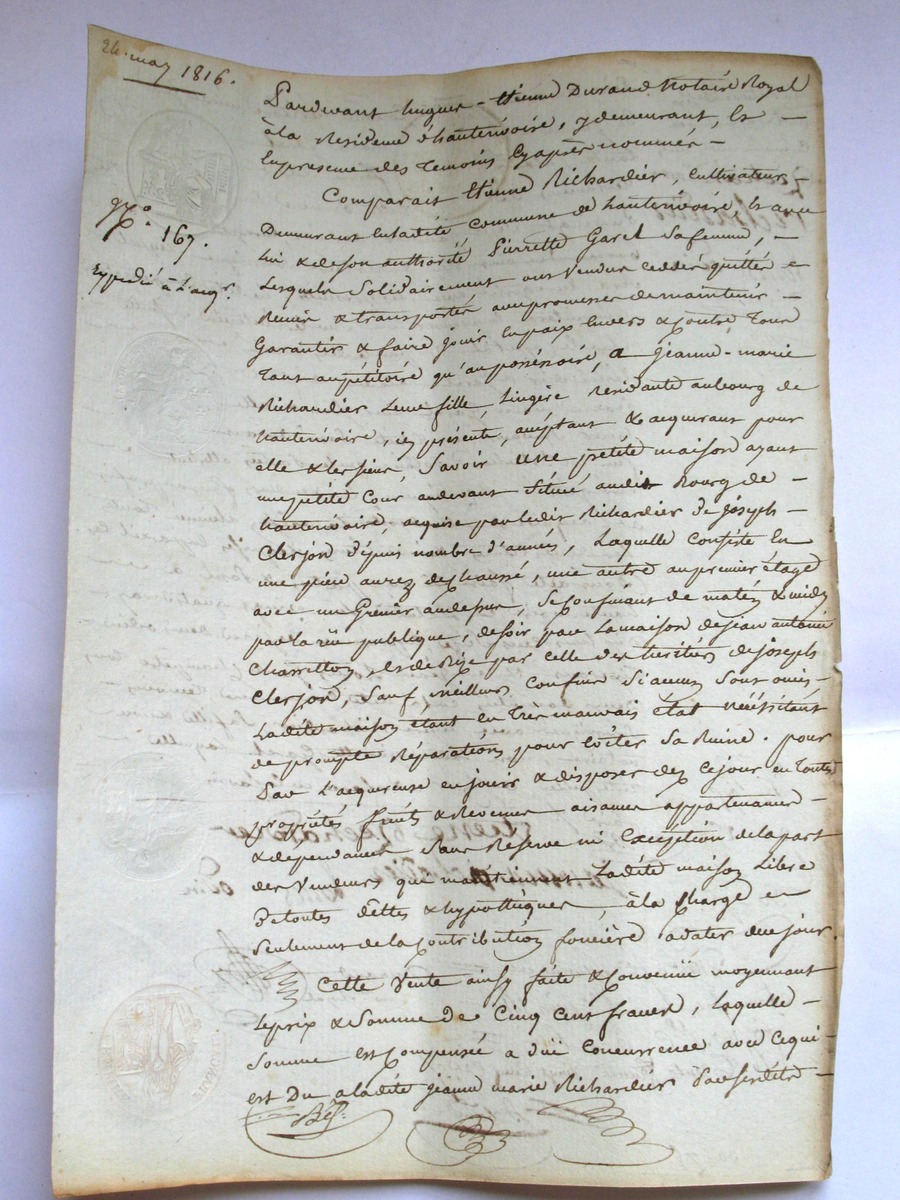 24. may 1816.
Pardevant hugues-Etienne Durand Notaire Royal
à la Residence d'hauterivoire, y demeurant, Et —
En presence des Temoins Cy après nommés —
Comparait Etienne Richardier, Cultivateur —
Demeurant Enladite Commune de hauterivoire, Et avec
gxo.
167.
Lui & de son authorité Pierrette Garel Safemme, —
Expedié à L'acqr.
Lesquels Solidairement ont Vendu ceddé quitté
Remis & transporté avec promesses de maintenir —
Garantir & faire jouir En paix Envers & Contre Tous
Tant aupétitoire qu'au possessoire, a jeanne-marie
Richardier Leur fille, Lingère Residante au bourg de
hauterivoire, icy présente, acceptant & acquerant pour
elle & les siens, Savoir une petite maison ayant
une petite Cour audevant Située audit Bourg de —
hauterivoire, acquise par ledit Richardier de joseph —
Clerjon dépuis nombre d'années, Laquelle Consiste En
une pièce au rez de chaussé, une autre au premier étage
avec un Grenier audessus, Se Confinant de matin & midy
par la rüe publique, de soir par La maison de jean antoine
Charretton, et de Bize par celle des heritiers de joseph
Clerjon, Sauf meilleurs Confins Si aucuns Sont omis —
Ladite maison étant en Très mauvais état nécéssitant
de prompte Réparation pour éviter Sa Ruine. pour
Par L'acquereuse en jouir & disposer dez Cejour en Toute
propriétés fruits & Revenus aisances appartenances —
& dependances Sans Réserve ni Exception de la part
des Vendeurs qui maintiennent Ladite maison Libre
De toutes dêttes & hypotheques, à la Charge
Seulement de la Contribution foncière à dater du jour
Cette Vente ainsy faite & Convenüe moyennant
Le prix & Somme de Cinq cent francs, Laquelle —
Somme Est Compensée a düe Concurrence avec Cequi
est Du a ladite jeanne marie Richardier par sesdits —